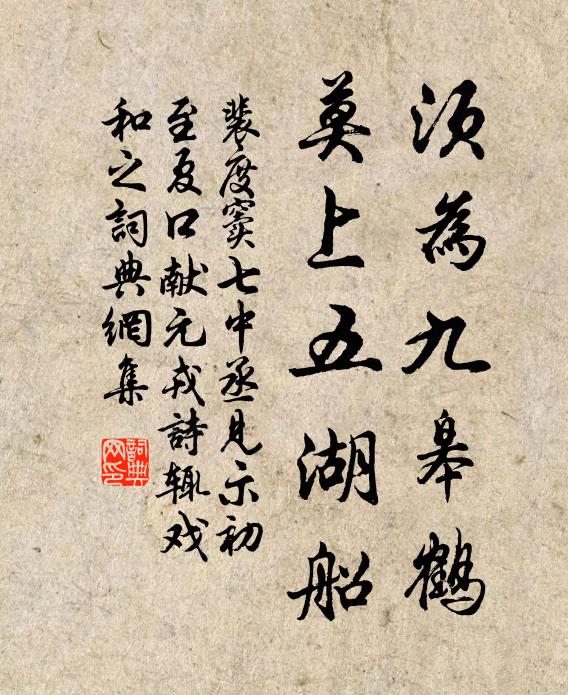 须為九皋鶴
莫上五湖船
裴度窦七中丞見示初
至夏口献元戎詩辄戏
和之詞典網集
詞典
网印